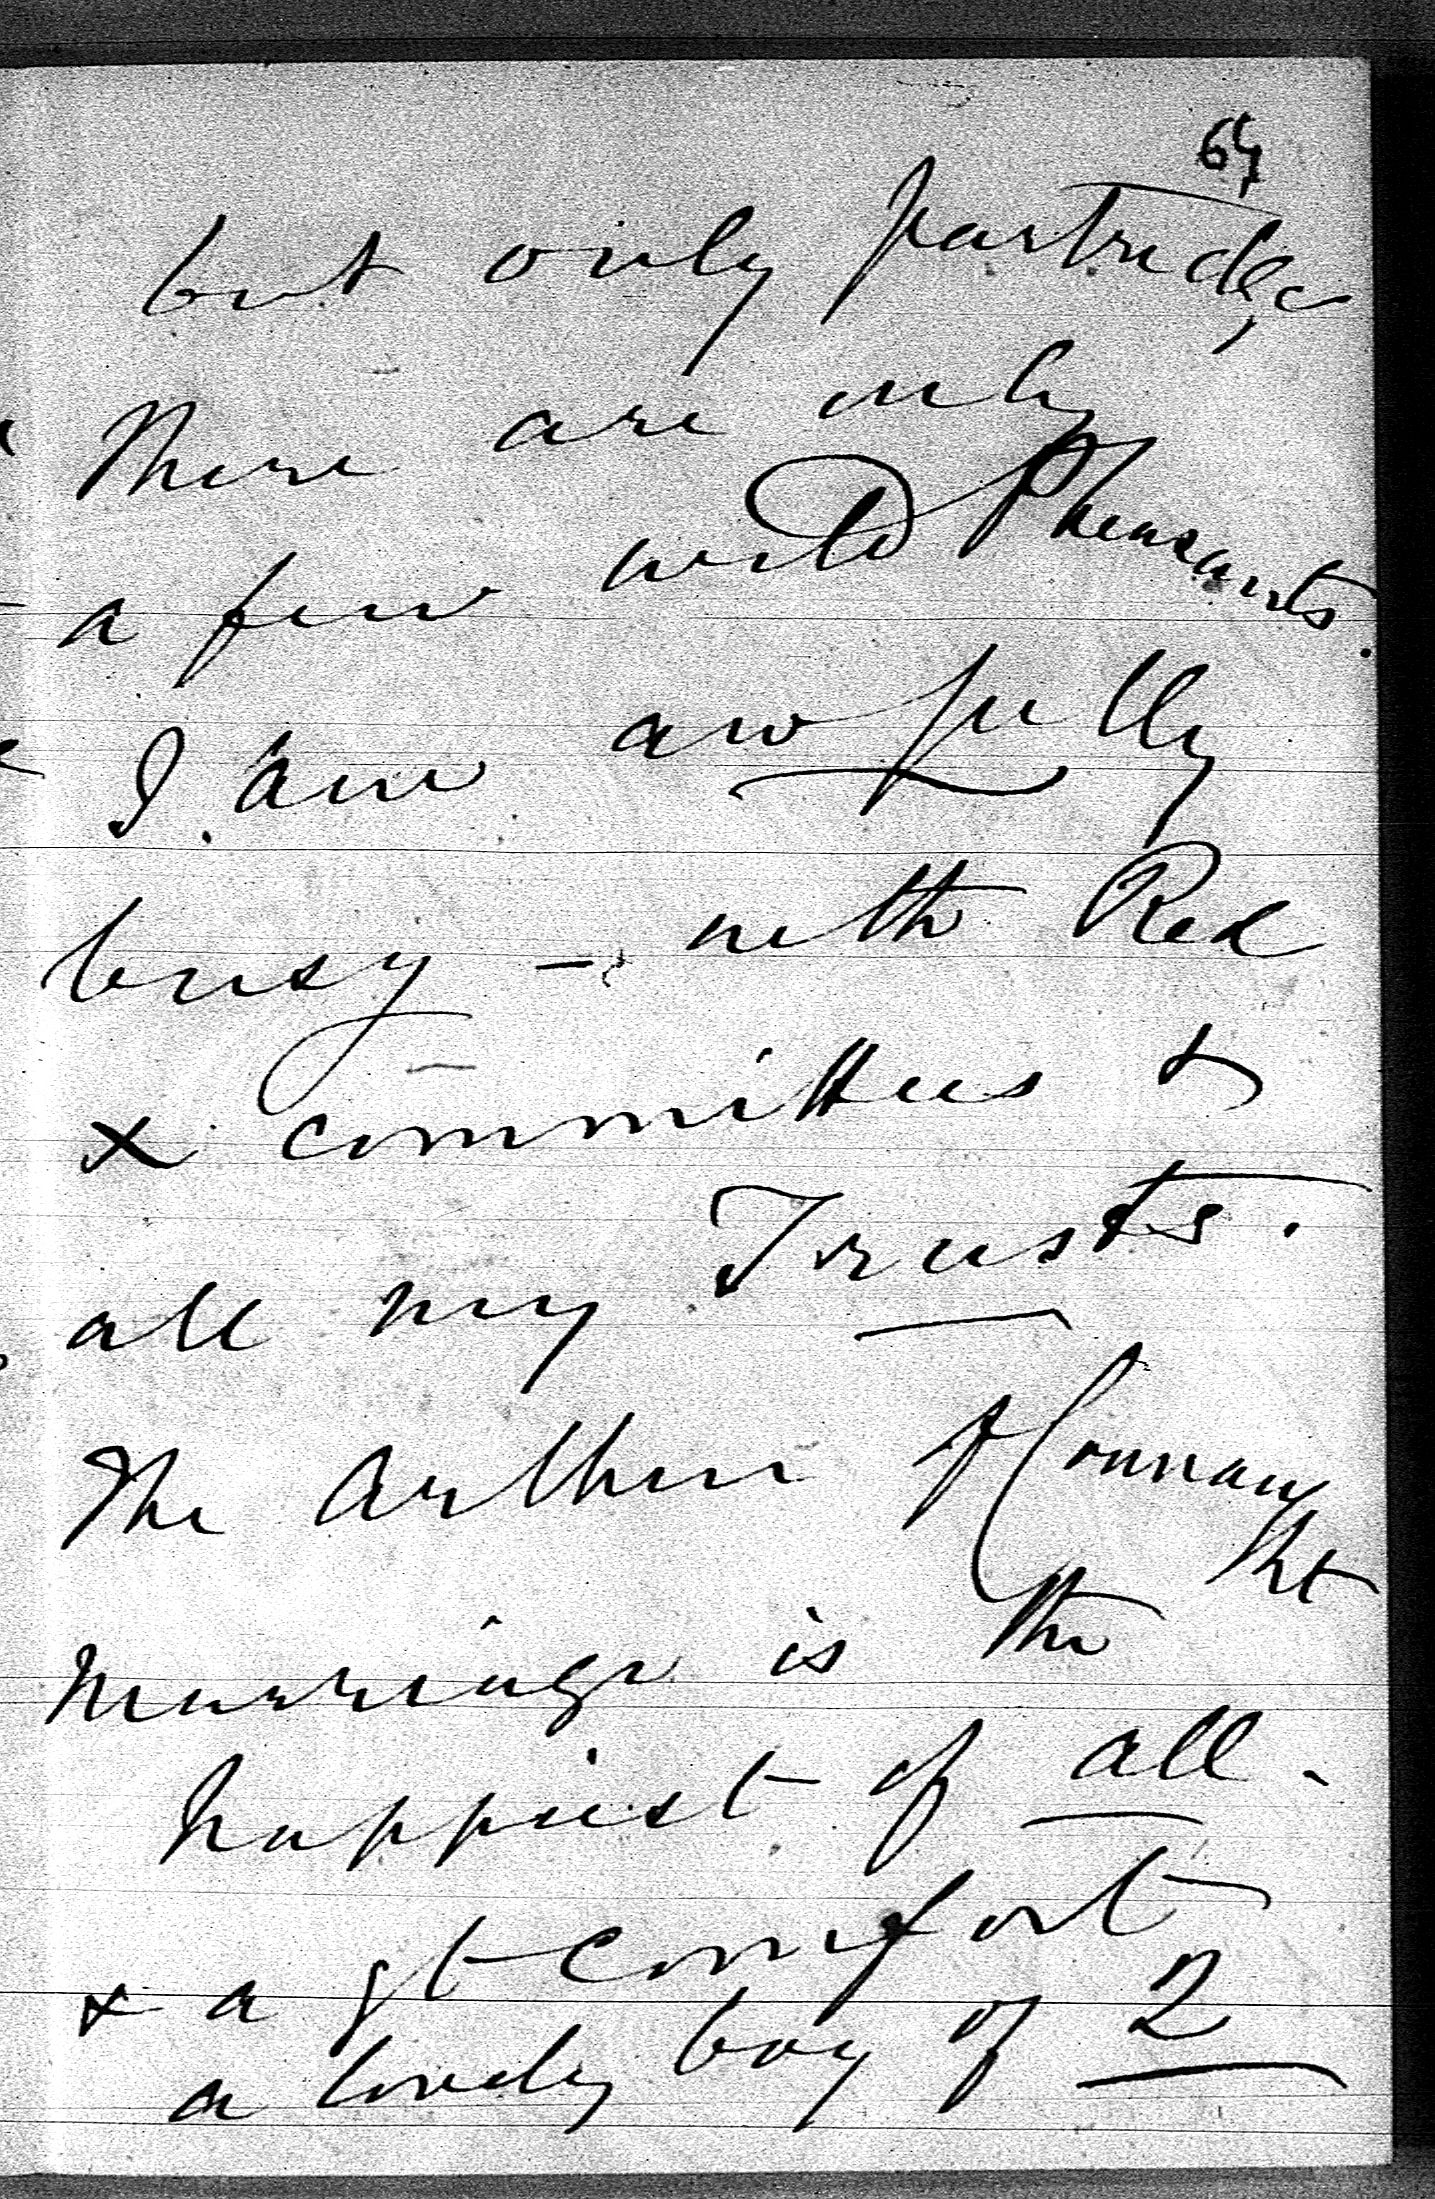 64
but only partridge,
there are only
a few wild Pheasants.
I am awfully
busy – with Red
x committees &
all my Trusts.
The Arthur of Connaught
marriage is the
happiest of all.
& a gt comfort
a lovely boy of 2